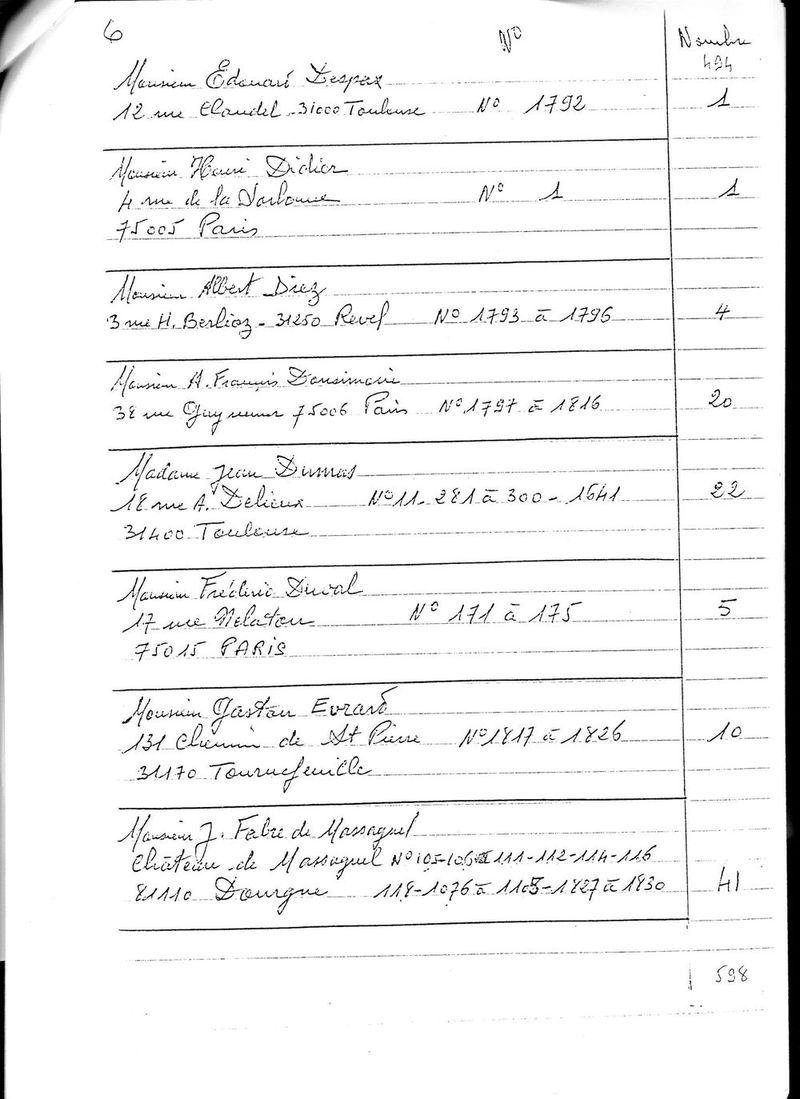 6
N° Nombre
494
Monsieur Edouard Despax
12 rue Claudel - 31000 Toulouse N° 1792 1
Monsieur Henri Didier
4 rue de la N° 1 1
75005 Paris
Monsieur Albert Diez
3 rue H. Berlioz - 31250 Revel N° 1793 à 1796 4
Monsieur A. François
38 rue Guynemer 75006 Paris N° 1797 à 1816 20
Madame Jean Dumas
18 rue A. Delieux N° 11 - 281 à 300 - 1641 22
31400 Toulouse
Monsieur Frédéric Duval
17 rue Nélaton N° 171 à 175 5
75015 PARIS
Monsieur Gaston Evrard
131 chemin de St Pierre N° 1817 à 1826 10
31170 Tournefeuille
Monsieur J. Fabre de Massaguel
Château de Massaguel N° 105-106 111-112-114-116
81110 Dourgne 118-1076 à 1105-1827 à 1830 41
598